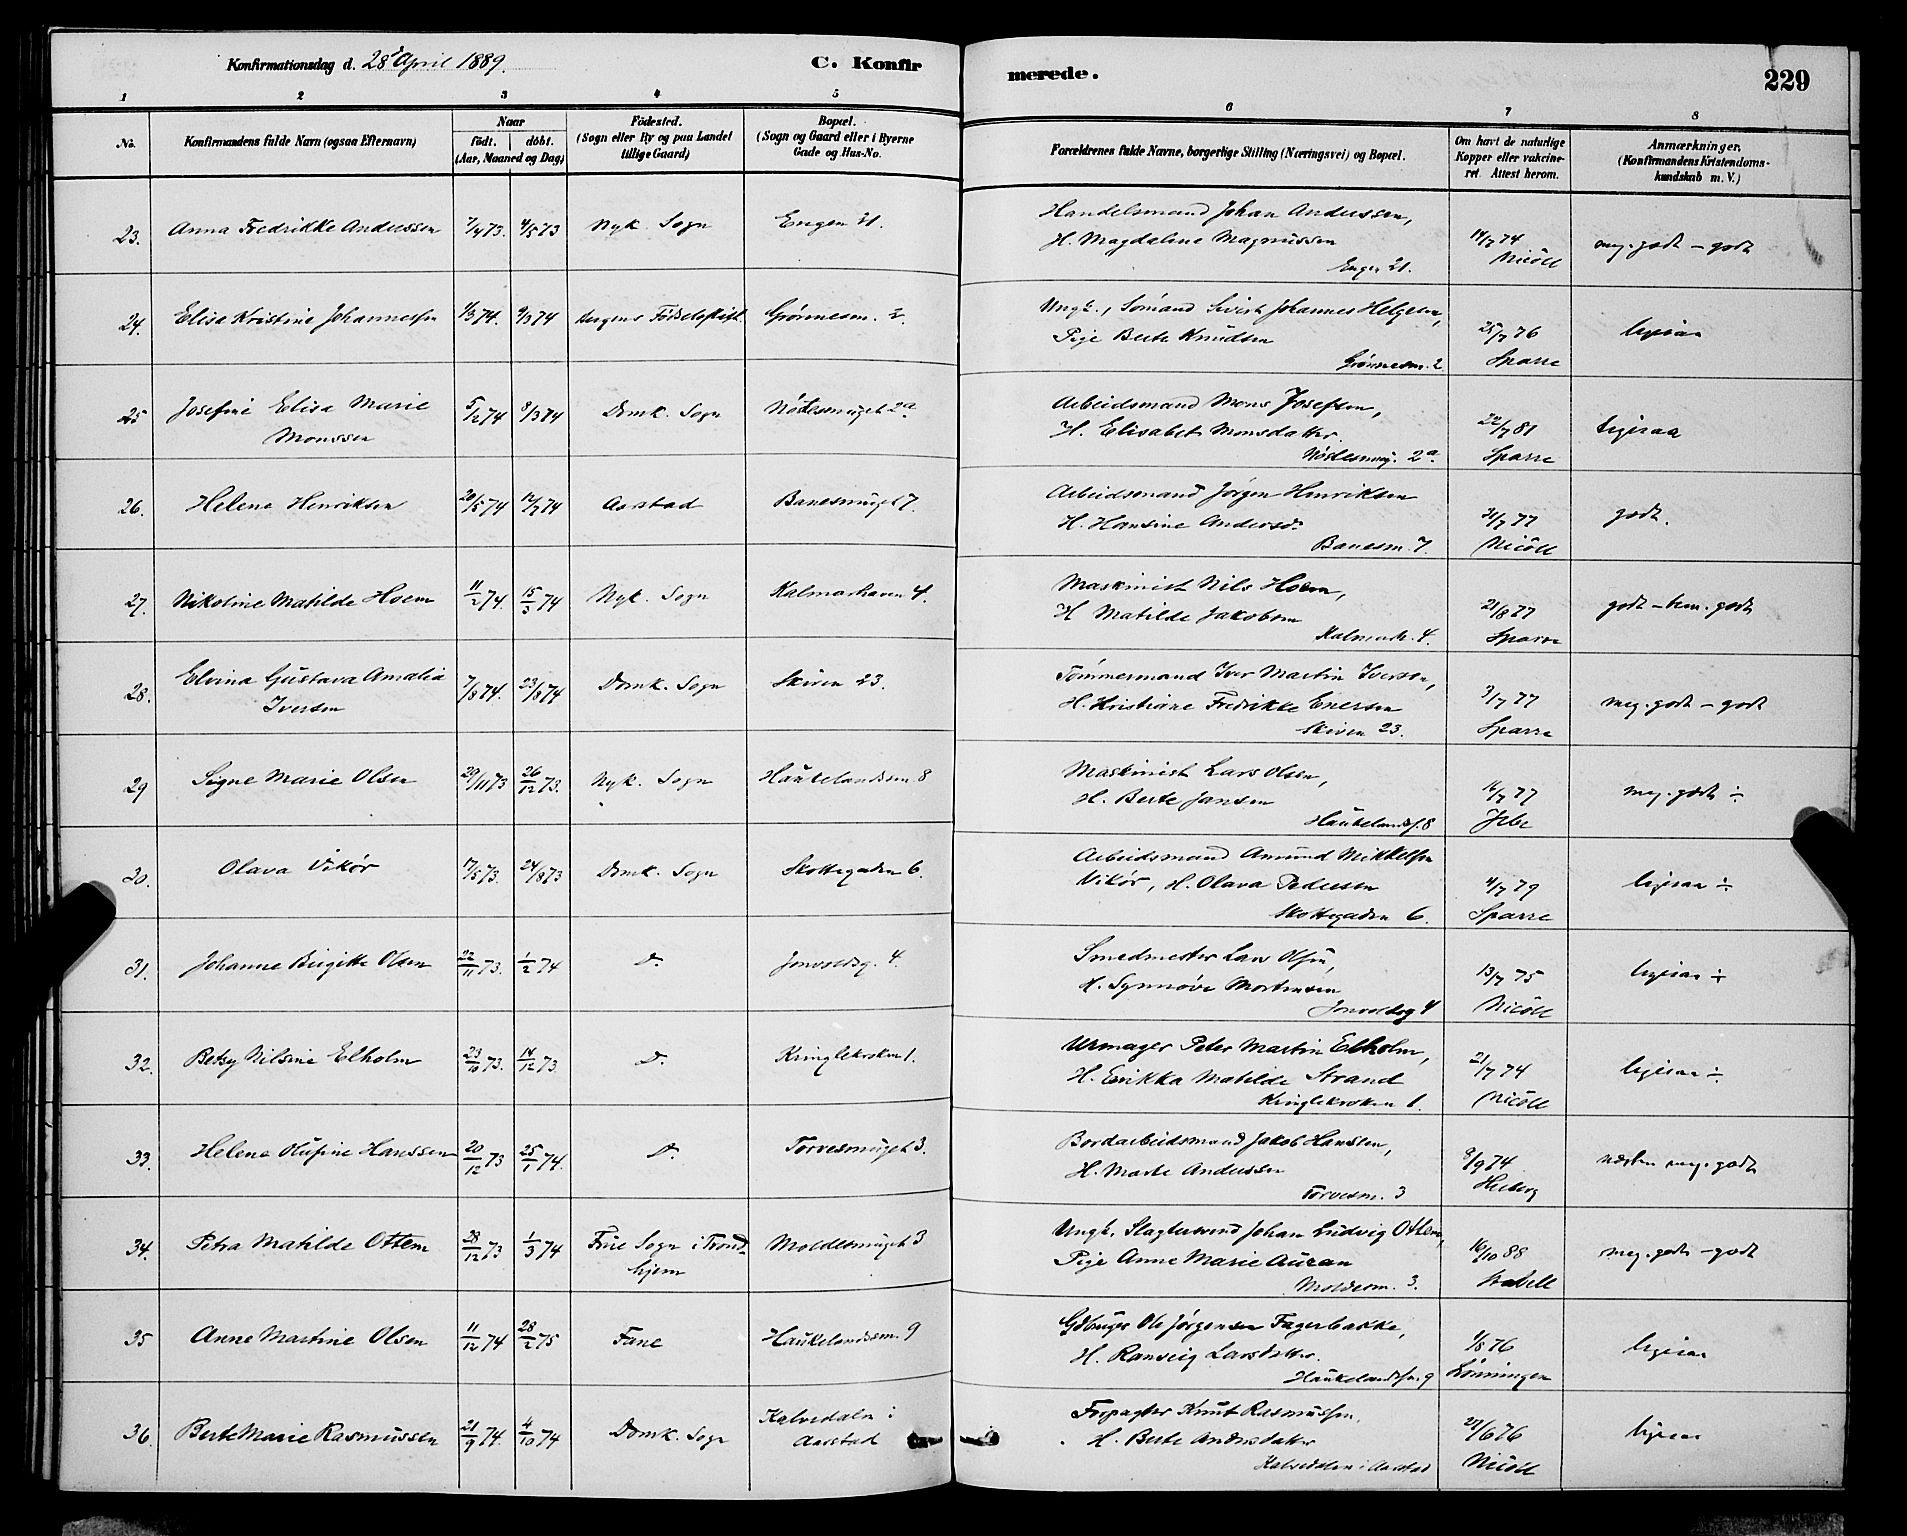 Konfirmationsdag d. 28de April 1889.
C. Konfirmerede.
229
1 2 3 4 5 6 7 8
No.
Konfirmandens fulde Navn (ogsaa Efternavn)
Naar
födt. döbt.
(Aar, Maaned og Dag)
Födested.
(Sogn eller By og paa Landet tillige Gaard)
Bopæl.
(Sogn og Gaard eller i Byerne Gade og Hus-No.
Forældrenes fulde Navne, borgerlige Stilling (Næringsvei) og Bopæl.
Om havt de naturlige Kopper eller vakcineret. Attest herom.
Anmærkninger.
(Konfirmandens Kristendomskundskab m. V.)
23. Anna Fredrikke Anderssen 7/4 73. 4/5 73 Nyk. Sogn Engen 21.
Handelsmand Johan Anderssen,
H. Magdaline Magnussen
Engen 21.
14/7 74
Nicöll
meg. godt – godt
24. Elisa Kristine Johannessen 1/3 74. 9/3 74 Bergens Födselsstift. Grönnesm. 2.
Ungk., Sömand Sivert Johannes Helgesen,
Pige Berte Knudsen
Grönnesm. 2
25/7 76
Sparre
ligesaa
25 Josefine Elisa Marie
Monssen
5/2 74 8/3 74 Domk. Sogn Nöstesmuget 2a
Arbeidsmand Mons Josefsen,
H. Elisabet Monsdatter.
Nöstesmug. 2a.
22/7 81
Sparre
ligesaa
26. Helene Henriksen 20/5 74 12/7 74 Aarstad Banesmuget 7.
Arbeidsmand Jörgen Henriksen
H. Hansine Andersd.
Banesm. 7.
31/7 77
Nicöll
godt.
27. Nikoline Matilde Hoem 11/2 74. 15/3 74 Nyk. Sogn Kalmarhaven 4.
Maskinist Nils Hoem,
H Matilde Jakobsen
Kalmarh. 4.
21/8 77
Sparre
godt – tem. godt
28. Elvina Gustava Amalia
Iversen
7/8 74. 23/8 74 Domk. Sogn Skiven 23.
Tömmermand Iver Martin Iversen,
H. Kristiane Fredrikke Enersen
Skiven 23.
3/7 77
Sparre
meg. godt – godt
29 Signe Marie Olsen 29/11 73 26/12 73. Nyk. Sogn Haukelandssm. 8
Maskinist Lars Olsen,
H. Berte Jansen
Haukelandss. 8
16/7 77
Jebe
meg. godt ÷
30. Olava Vikör 17/5 73. 24/8 73 Domk. Sogn Skottegaden 6.
Arbeidsmand Amund Mikkelsen
Vikör, H. Olava Pedersen
Skottegaden 6.
4/7 79
Sparre
ligesaa ÷
31. Johanne Birgitte Olsen 22/11 73. 1/2 74 Do. Jonvoldsg. 4.
Smedmester Lars Olsen,
H. Synnöve Mortensen
Jonvoldsg 4
13/7 75
Nicöll
ligesaa ÷
32. Betzy Nilsine Elholm 23/10 73. 14/12 73. Do. Kringlekroken 1.
Urmager Peter Martin Elholm,
H. Erikka Matilde Strand
Kringlekroken 1.
21/7 74
Nicöll
ligesaa ÷.
33. Helene Olufine Hanssen 20/12 73 25/1 74. Do. Torvesmuget 3.
Bordarbeidsmand Jakob Hanssen,
H. Marte Anderssen
Torvesm. 3
8/9 74
Heiberg
næsten meg. godt
34. Petra Matilde Ottem 28/12 73 1/3 74 Frue Sogn i Trond-
hjem
Moldesmuget 3
Ungk. Slagtersvend Johan Ludvig Ottem,
Pige Anne Marie Auran
Moldesm. 3.
16/10 88
meg. godt – godt
35 Anne Martine Olsen 11/12 74 28/2 75 Fane Haukelandssm. 9
Gdbruger Ole Jörgensen Fagerbakke,
H. Ranveig Larsdatter.
Haukelandssm. 9
1/8 76
Lönningen
ligesaa
36. Berte Marie Rasmussen 21/9 74. 4/10 74 Domk. Sogn Kalvedalen i
Aarstad
Forpagter Knut Rasmussen,
H. Berte Andersdatter
Kalvedalen i Aarstad
27/6 76
Nicöll
ligesaa